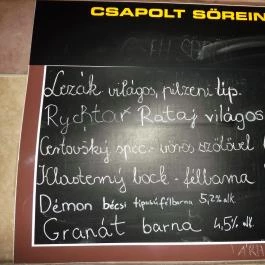 CSAPOLT SÖREIN
Lezák világos, pilzeni típ.
Rychtár Rataj világos
Čertovský spéc. vörös szőlővel
Klásterný bock - félbarna
Démon bécsi típusú, félbarna 5,2% alk.
Granát barna 4,5% alk.